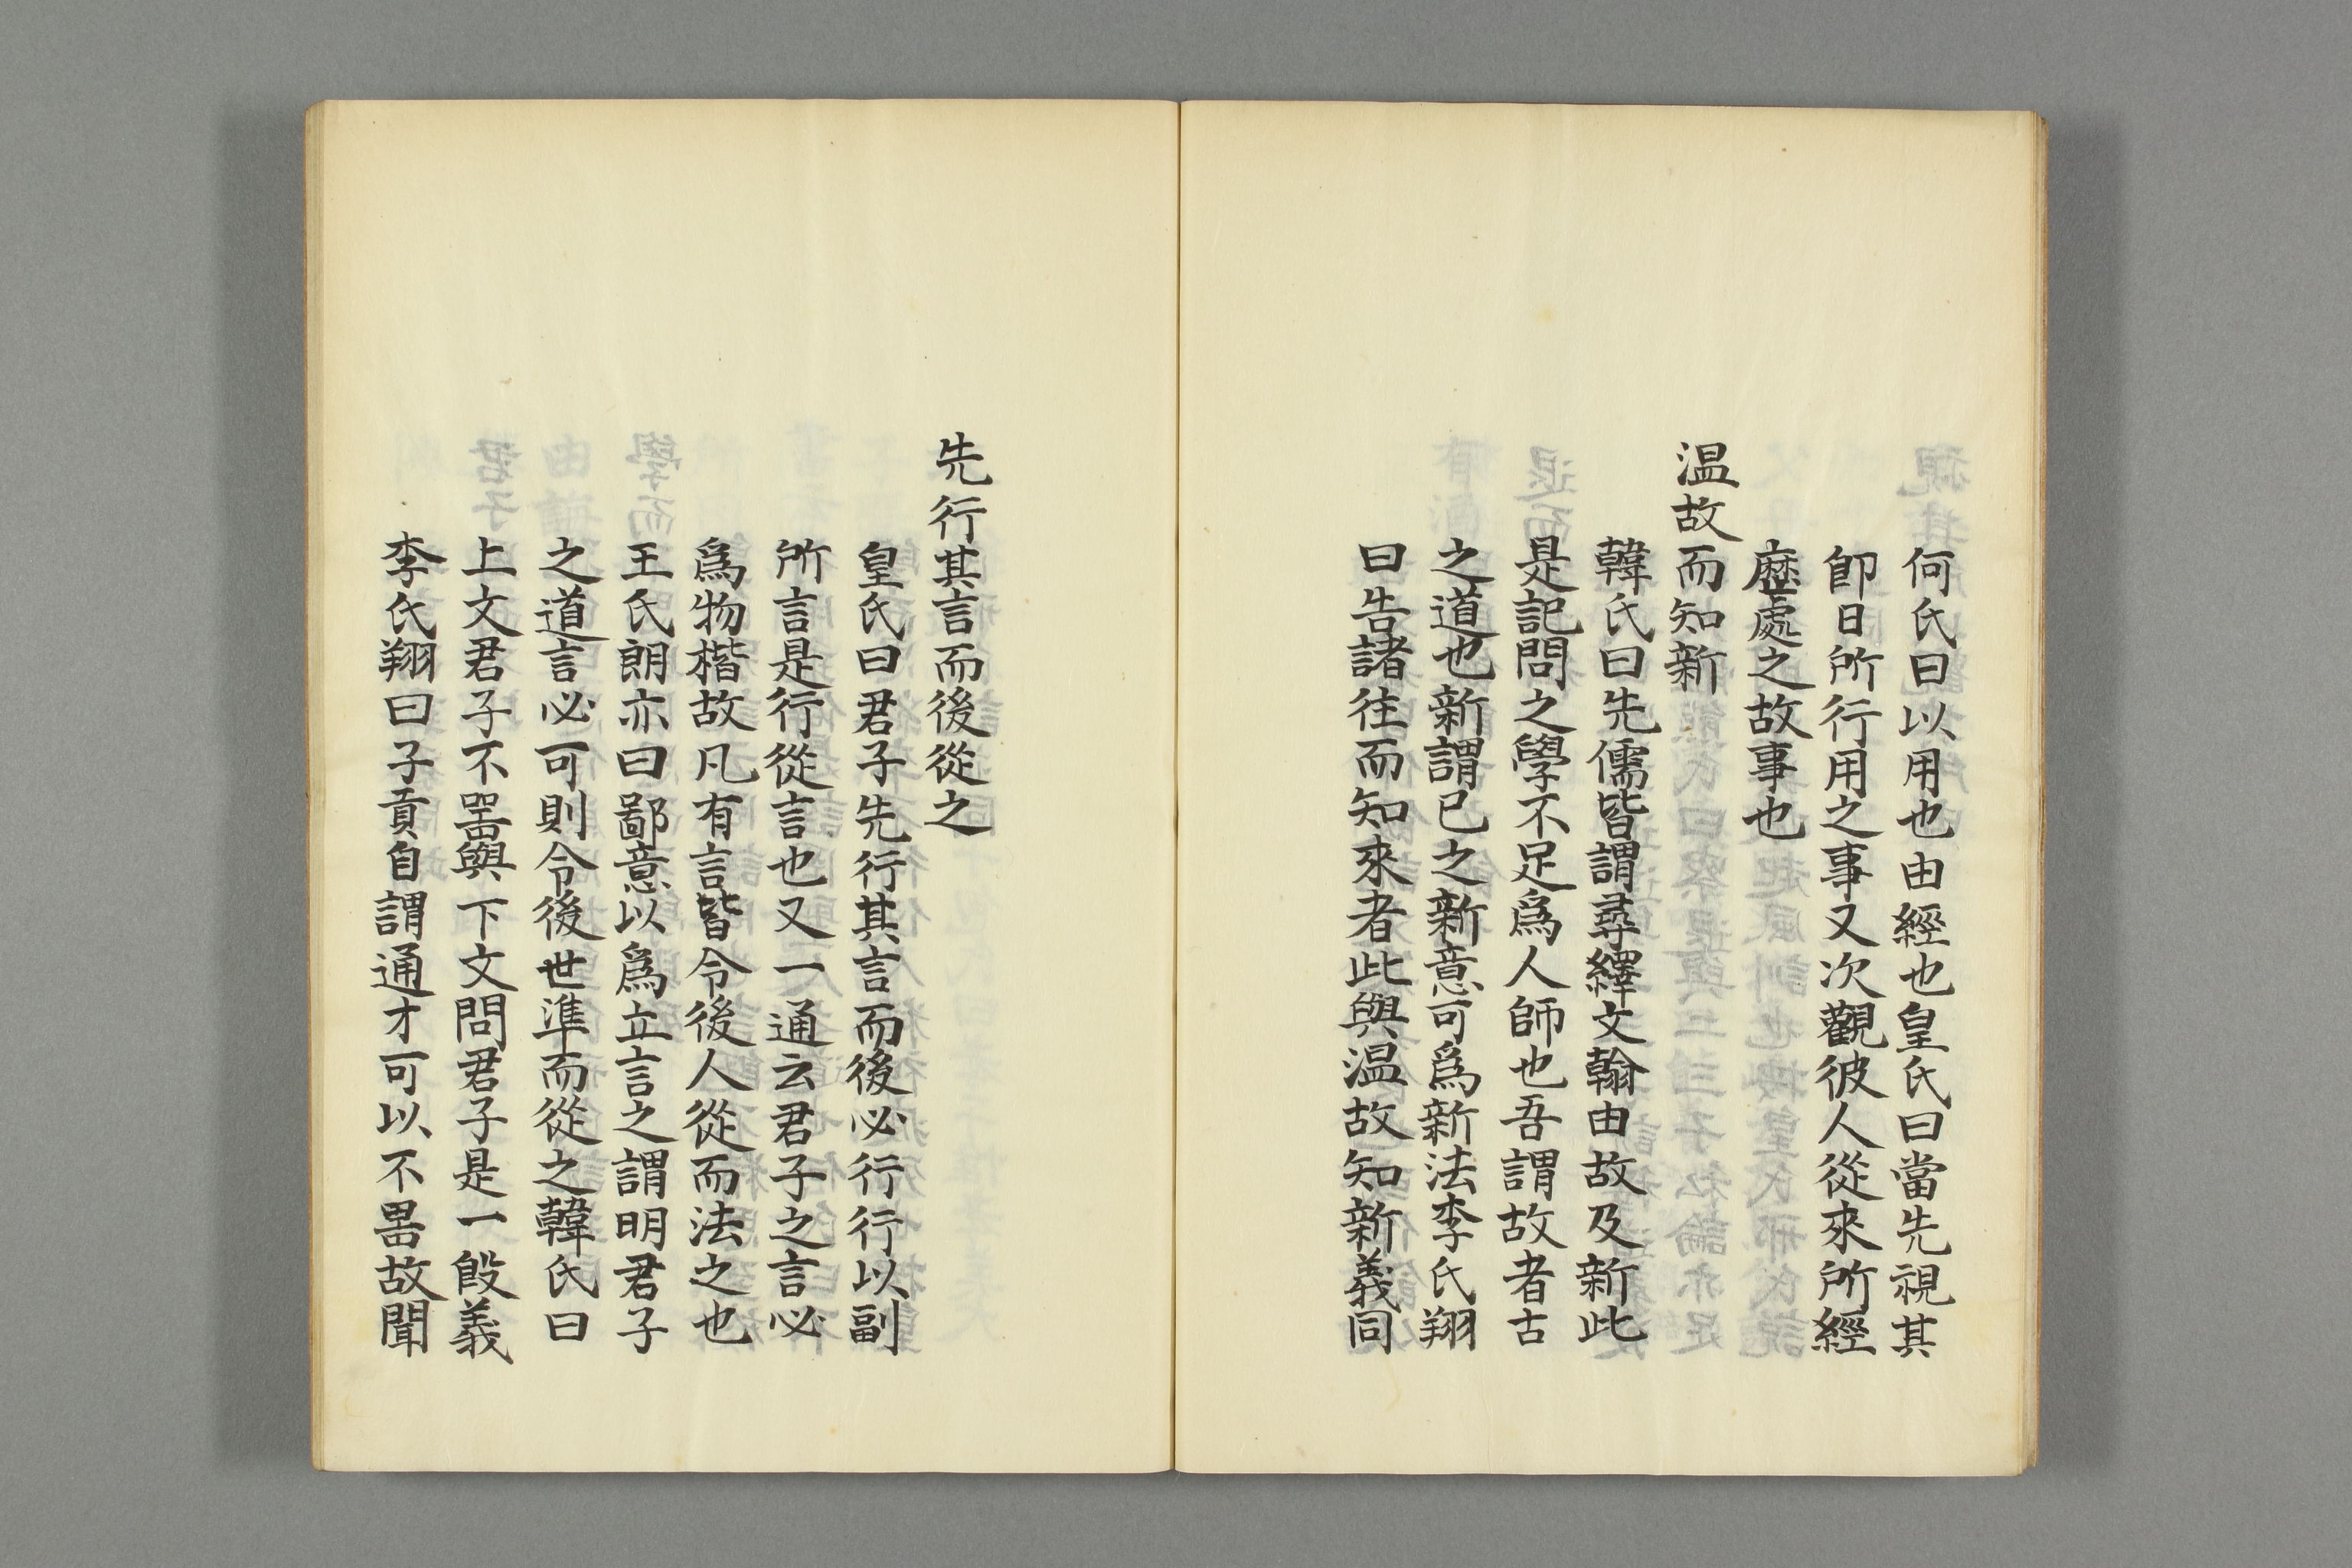 何氏曰以用也由經也皇氏曰當先視其
卽日所行用之事又次觀彼人從來所經
歷處之故事也
温故而知新
韓氏曰先儒皆謂尋繹文翰由故及新此
是記問之學不足爲人師也吾謂故者古
之道也新謂已之新意可爲新法李氏翔
曰告諸往而知來者此與温故知新義同
先行其言而後從之
皇氏曰君子先行其言而後必行行以副
所言是行從言也又一通云君子之言必
爲物楷故凡有言皆令後人從而法之也
王氏朗亦曰鄙意以爲立言之謂明君子
之道言必可則令後世準而從之韓氏曰
上文君子不器與下文問君子是一段義
李氏翔曰子貢自謂通才可以不器故聞